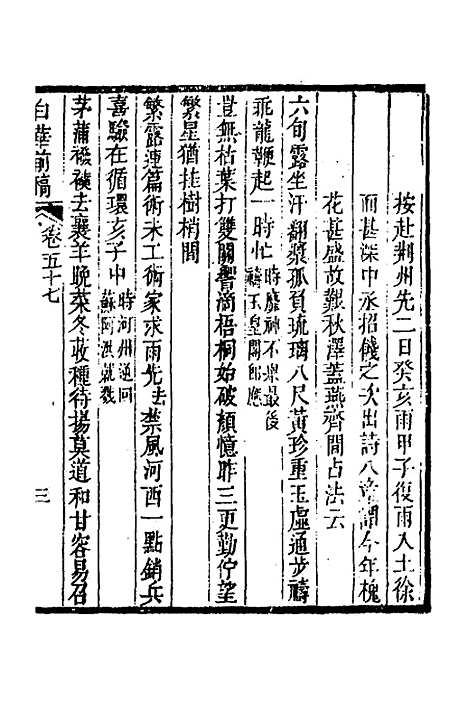 按赴荆州先二日癸亥雨甲子復雨入土徐
而甚深中丞招餞之次出詩八章謂今年槐
花甚盛故艱秋澤蓋燕齊間占法云
六旬露坐汗翻漿孤負琉璃八尺黃珍重玉虛通步禱
乖龍鞭起一時忙時靡神不舉最後禱玉皇閣郎應
豈無枯葉打雙關響滴梧桐始破顏憶昨三更勤佇望
繁星猶挂樹梢間
繁露連篇術未工術家求雨先去禁風河西一點銷兵
喜驗在循環亥子中時河州逆回蘇阿渾就戮
茅蒲襏襫去襄羊晚菜冬收種待揚莫道和甘容易召
白華前稿
卷五十七
三